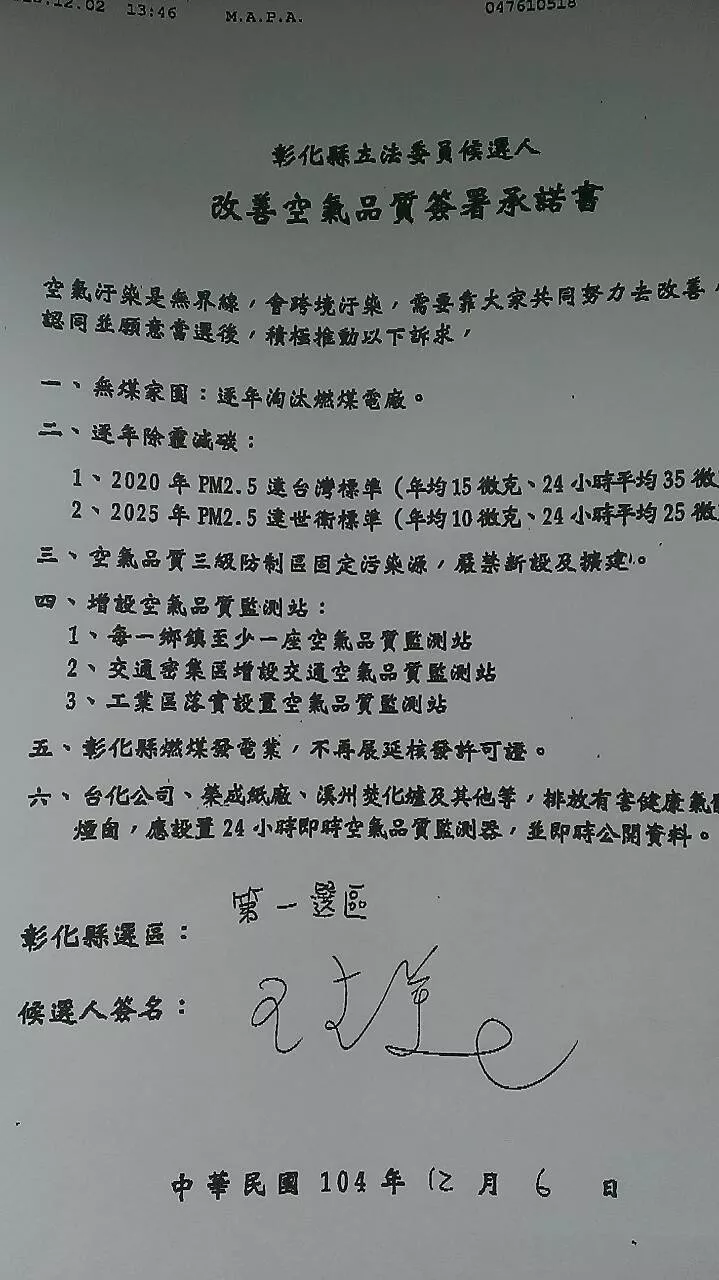 12.02 13:46 M.A.P.A. 047610518
彰化縣立法委員候選人
改善空氣品質簽署承諾書
空氣汙染是無界線，會跨境汙染，需要靠大家共同努力去改善，
認同並願意當選後，積極推動以下訴求，
一、無煤家園：逐年淘汰燃煤電廠。
二、逐年除霾減碳：
1、2020 年 PM2.5 達台灣標準 (年均15 微克、24 小時平均 35 微
2、2025 年 PM2.5 達世衛標準 (年均10 微克、24 小時平均 25 微
三、空氣品質三級防制區固定污染源，嚴禁新設及擴建。
四、增設空氣品質監測站：
1、每一鄉鎮至少一座空氣品質監測站
2、交通密集區增設交通空氣品質監測站
3、工業區落實設置空氣品質監測站
五、彰化縣燃煤發電業，不再展延核發許可證。
六、台化公司、榮成紙廠、溪州焚化爐及其他等，排放有害健康氣體
煙囪，應設置 24 小時即時空氣品質監測器，並即時公開資料。
彰化縣選區：第一選區
候選人簽名：
中華民國 104 年 12 月 6 日